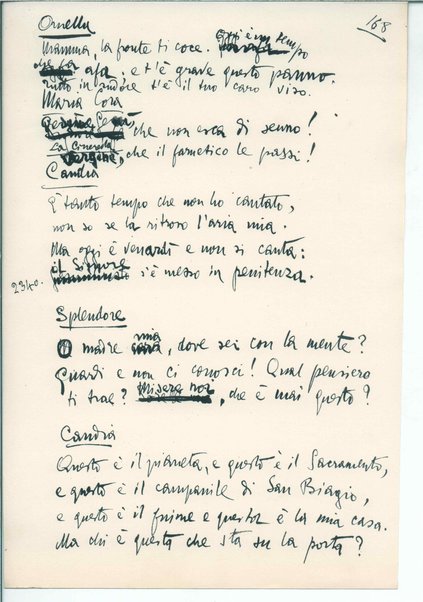 168
Ornella
Mamma, la fronte ti coce. Oggi è un tempo
che fa afa; e t'è grave questo panno.
Tutto in sudore t'è il tuo caro viso.
Maria Cora
che non esca di senno!
La Cinerella
Vergine, che il farnetico le passi!
Candia
È tanto tempo che non ho cantato,
non so se la ritrovo l'aria mia.
Ma oggi è venerdì e non si canta:
il Signore s'è messo in penitenza.
2340.
Splendore
O madre mia, dove sei con la mente?
Guardi e non ci conosci! Qual pensiero
ti trae? Misere noi, che è mai questo?
Candia
Questo è il pianeta, e questo è il Sacramento,
e questo è il campanile di San Biagio,
e questo è il fiume e questa è la mia casa.
Ma chi è questa che sta su la porta?